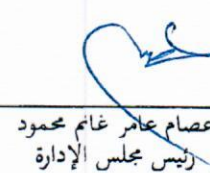 عصام عامر غانم محمود
رئيس مجلس الإدارة